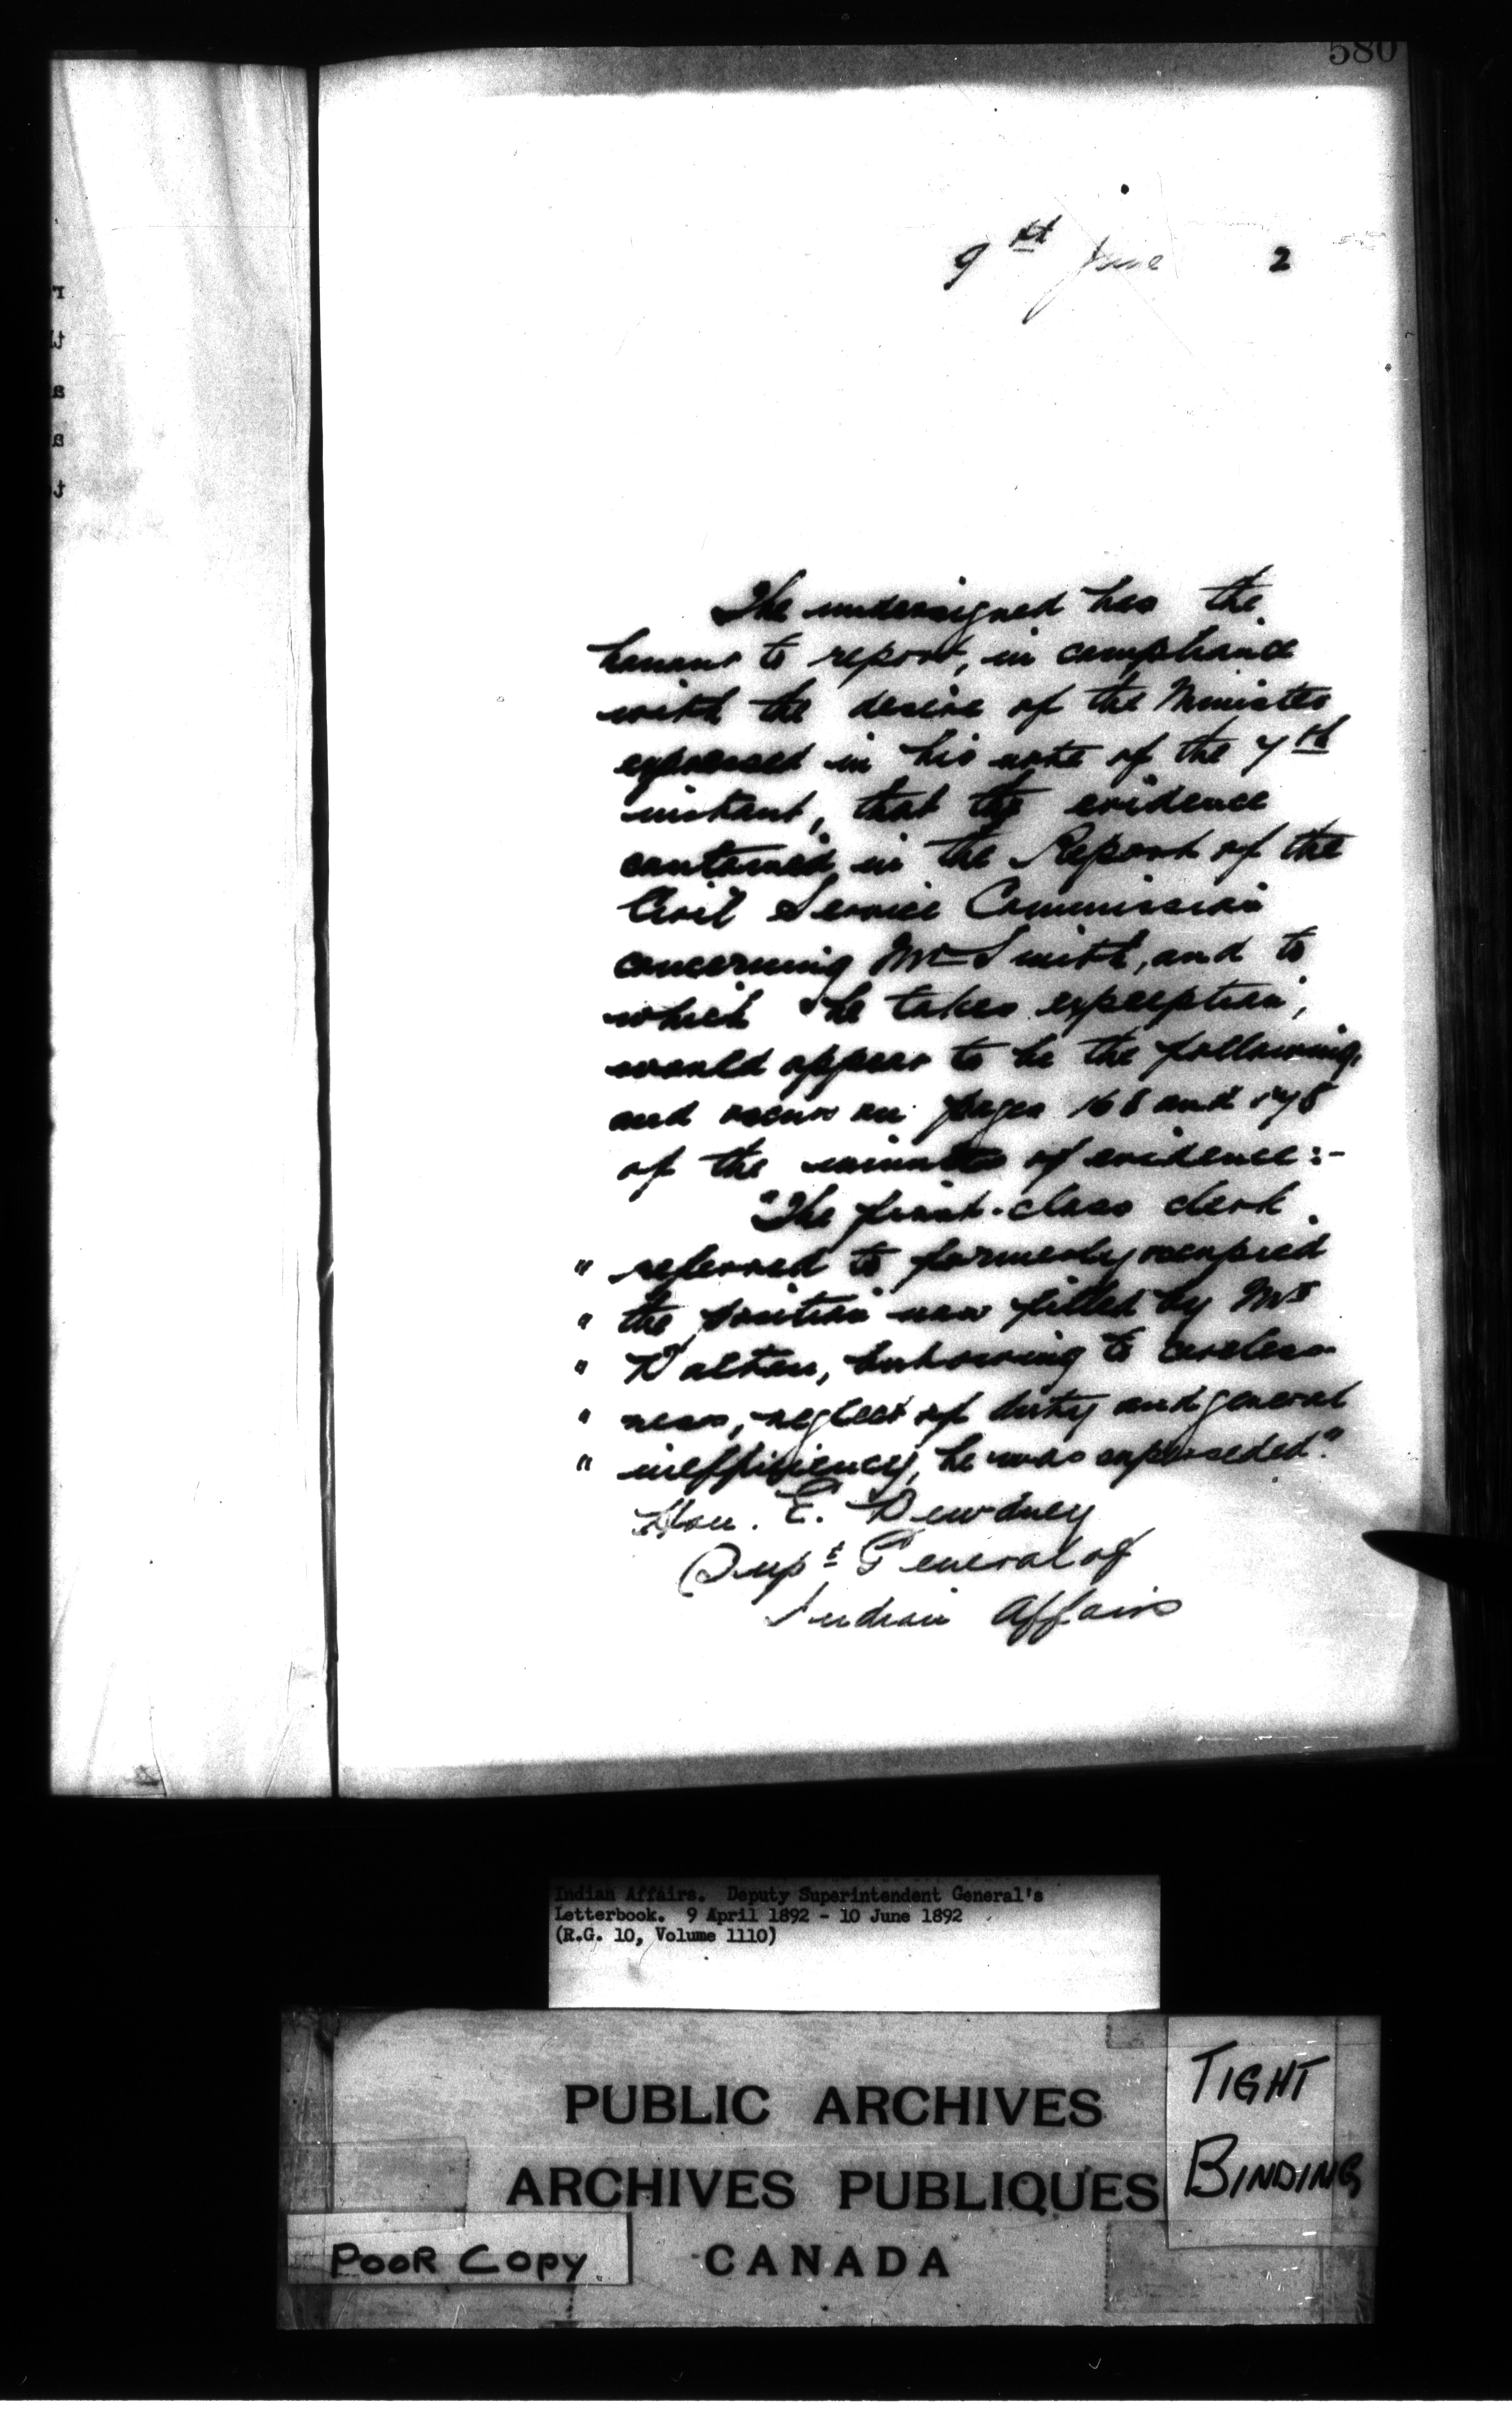 580
9th June 2
The undersigned has the
honour to report, in compliance
with the desire of the Minister
expressed in his note of the 7th
instant, that the evidence
contained in the Report of the
Civil Service Commission
concerning Mr Smith, and to
which he takes exception,
would appear to be the following,
and occurs on pages 168 and 178
of the minutes of evidence:-
"The first-class clerk
" referred to formerly occupied
" the position now filled by Mr
" Dalton, but owing to careless-
" ness, neglect of duty and general
" inefficiency, he was superseded."
Hon. E. Dewdney
Supt General of
Indian Affairs
Indian Affairs. Deputy Superintendent General's
Letterbook. 9 April 1892 - 10 June 1892
(R.G. 10, Volume 1110)
PUBLIC ARCHIVES
ARCHIVES PUBLIQUES
CANADA
TIGHT
BINDING
POOR COPY